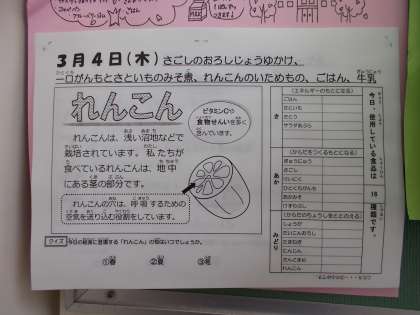 3月4日(木) さごしのおろしじょうゆかけ、
一口がんもとさといものみそ煮、れんこんのいためもの、ごはん、牛乳
れんこん
ビタミンCや
食物せんいを多く
含んでいます。
れんこんは、浅い沼地などで
栽培されています。私たちが
食べているれんこんは、地中
にある茎の部分です。
れんこんの穴は、呼吸するための
空気を送り込む役割をしています。
クイズ 今日の給食に登場する「れんこん」の旬はいつでしょうか。
①春 ②夏 ③冬
今日、使用している食品は 18 種類です。
き
(エネルギーのもとになる)
ごはん
さといも
さとう
サラダあぶら
あか
(からだをつくるもとになる)
ぎゅうにゅう
さごし
ひとくちがんも
あかみそ
けずりぶし
みどり
(からだのちょうしをととのえる)
しょうが
だいこんおろし
たまねぎ
にんじん
さんどまめ
れんこん